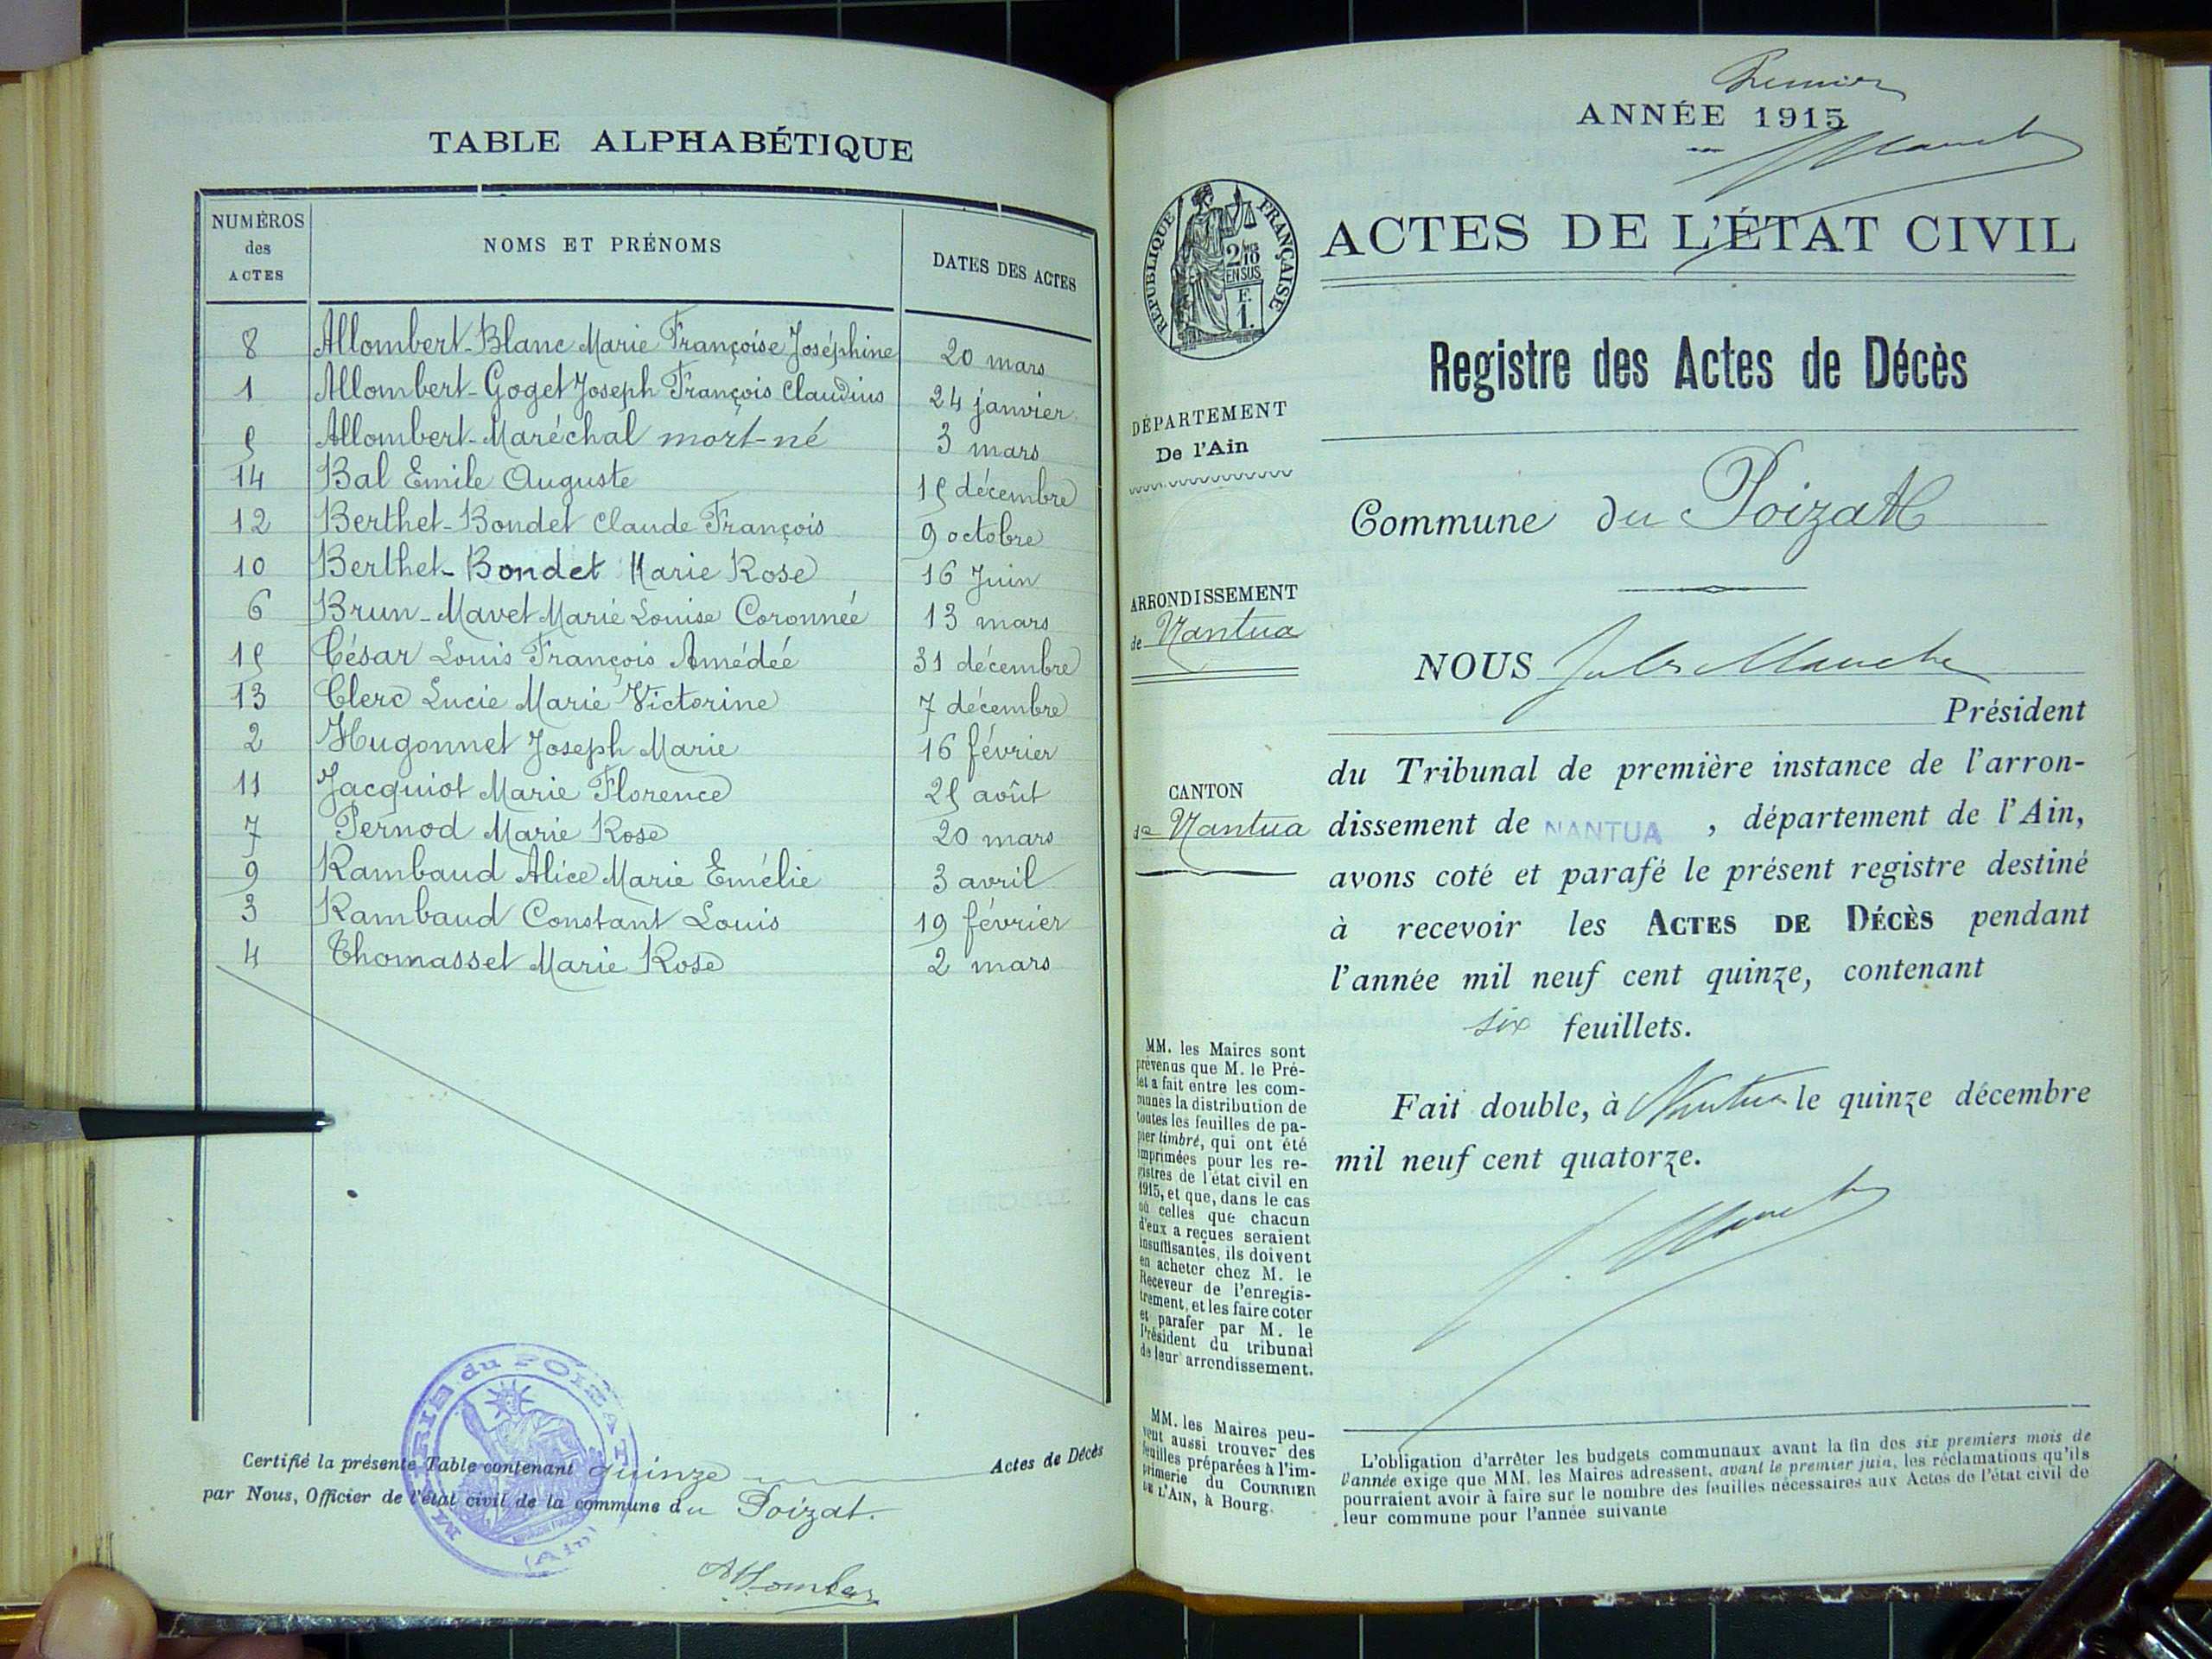 TABLE ALPHABÉTIQUE
NUMÉROS des ACTES
NOMS ET PRÉNOMS
DATES DES ACTES
8 Allombert-Blanc Marie Françoise Joséphine 20 mars
1 Allombert-Goget Joseph François Claudius 24 janvier
5 Allombert-Maréchal mort-né 3 mars
14 Bal Emile Auguste 15 décembre
12 Berthet-Bondet Claude François 9 octobre
10 Berthet-Bondet Marie Rose 16 Juin
6 Brun-Mavet Marie Louise Coronnée 13 mars
15 César Louis François Amédéé 31 décembre
13 Clerc Lucie Marie Victorine 7 décembre
2 Hugonnet Joseph Marie 16 février
11 Jacquiot Marie Florence 25 août
7 Pernod Marie Rose 20 mars
9 Rambaud Alice Marie Emélie 3 avril
3 Rambaud Constant Louis 19 février
4 Thomasset Marie Rose 2 mars
Certifié la présente Table contenant quinze Actes de Décès
par Nous, Officier de l'état civil de la commune du Poizat.
MAIRIE du POIZAT
(Ain)
Premier
ANNÉE 1915
ACTES DE L'ÉTAT CIVIL
RÉPUBLIQUE FRANÇAISE
2/10
EN SUS
F.
1.
Registre des Actes de Décès
DÉPARTEMENT
De l'Ain
Commune du Poizat
ARRONDISSEMENT
de Nantua
NOUS Jules
Président
du Tribunal de première instance de l'arron-
CANTON
de Nantua
dissement de NANTUA , département de l'Ain,
avons coté et parafé le présent registre destiné
à recevoir les ACTES DE DÉCÈS pendant
l'année mil neuf cent quinze, contenant
six feuillets.
Fait double, à Nantua le quinze décembre
mil neuf cent quatorze.
MM. les Maires sont
prévenus que M. le Pré-
fet a fait entre les com-
munes la distribution de
toutes les feuilles de pa-
pier timbré, qui ont été
imprimées pour les re-
gistres de l'état civil en
1915, et que, dans le cas
où celles que chacun
d'eux a reçues seraient
insuffisantes, ils doivent
en acheter chez M. le
Receveur de l'enregis-
trement, et les faire coter
et parafer par M. le
Président du tribunal
de leur arrondissement.
MM. les Maires peu-
vent aussi trouver des
feuilles préparées à l'im-
primerie du COURRIER
DE L'AIN, à Bourg.
L'obligation d'arrêter les budgets communaux avant la fin des six premiers mois de
l'année exige que MM. les Maires adressent, avant le premier juin, les réclamations qu'ils
pourraient avoir à faire sur le nombre des feuilles nécessaires aux Actes de l'état civil de
leur commune pour l'année suivante